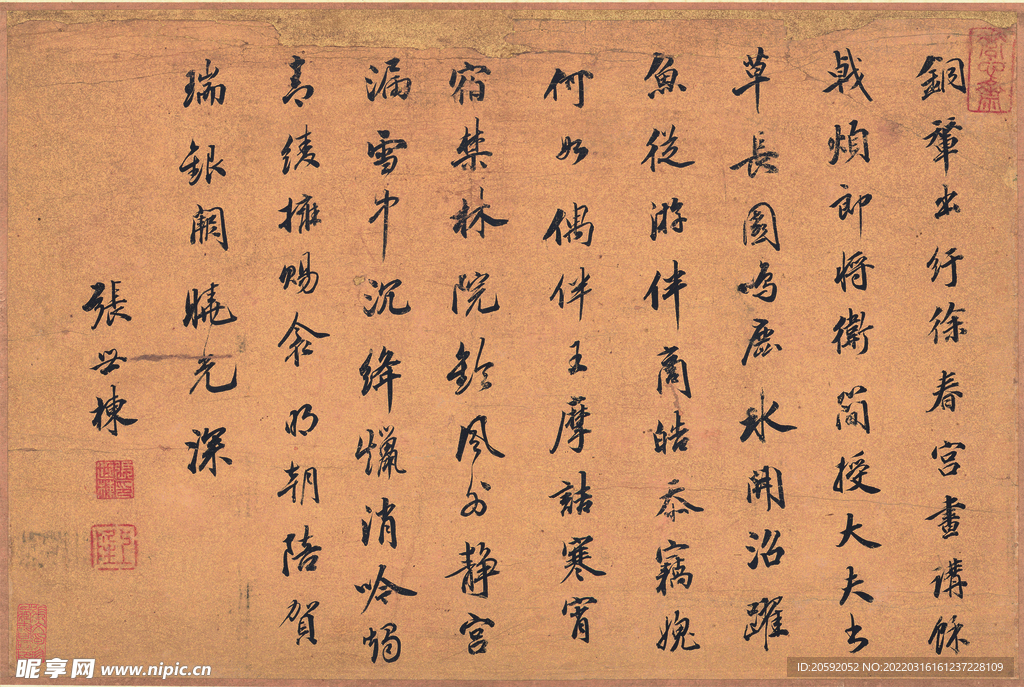 銅輦出行徐春宮畫講餘
戟煩郎將衛簡授大夫書
草長園鳴鹿冰開沼躍
魚從游伴商皓忝竊媿
何如偶伴王摩詰寒宵
宿禁林院鈴風外静宮
漏雪中沉絳蠟消吟燭
青綾擁賜衾明朝陪賀
瑞銀闕曉光深
張世棟
昵享网 www.nipic.cn
ID:20592052 NO:20220316161237228109